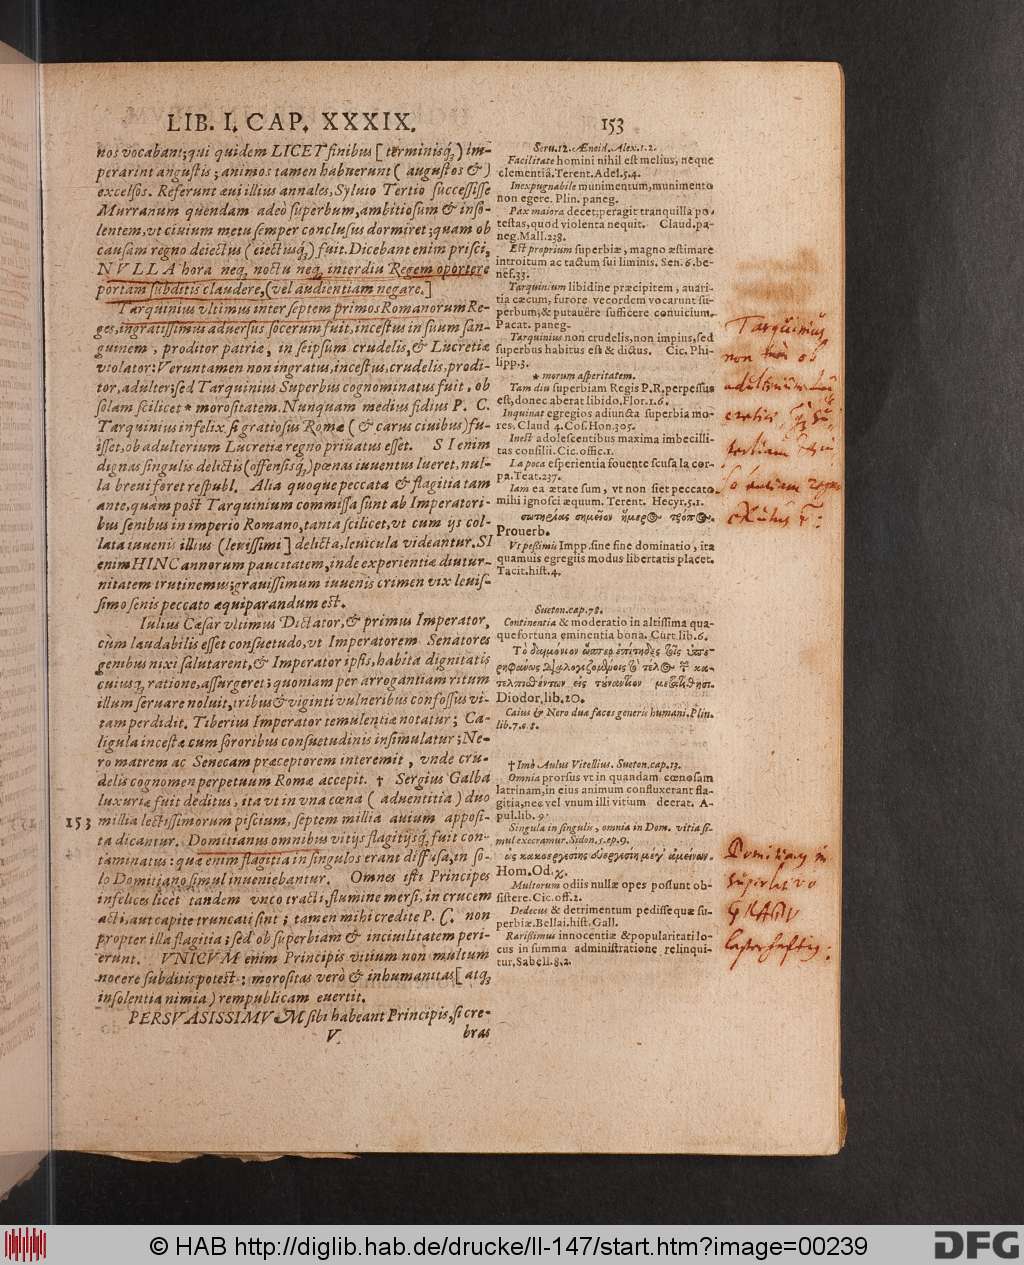 LIB. I. CAP. XXXIX.
153
nos vocabant; qui quidem LICET finibus [terminisq́;) im-
perarint angustis; animos tamen habuerunt (augustos &)
excelsos. Referunt æui illius annales, Syluio Tertio successisse
Murranum quendam adeò superbum, ambitiosum & inso-
lentem, vt ciuium metu semper conclusus dormiret; quam ob
causam regno deiectus (eiectusq́;) fuit. Dicebant enim prisci,
NVLLA hora neq; noctu neq; interdiu Regem oportere
portam subditis claudere, (vel audientiam negare.]
Tarquinius vltimus inter septem primos Romanorum Re-
ges, ingratissimus aduersus socerum fuit, incestus in suum san-
guinem, proditor patriæ, in seipsum crudelis, & Lucretiæ
violator: Veruntamen non ingratus, incestus, crudelis, prodi-
tor, adulter; sed Tarquinius Superbus cognominatus fuit, ob
solam scilicet * morositatem. Nunquam medius fidius P. C.
Tarquinius infelix si gratiosus Romæ (& carus ciuibus) fu-
isset, ob adulterium Lucretiæ regno priuatus esset. SI enim
dignas singulis delictis (offensisq́;) pœnas iuuentus lueret, nul-
la breui foret respubl. Alia quoque peccata & flagitia tam
ante, quàm post Tarquinium commissa sunt ab Imperatori-
bus senibus in imperio Romano, tanta scilicet, vt cum ijs col-
lata iuuenis illius (leuissimi] delicta, leuicula videantur. SI
enim HINC annorum paucitatem, inde experientiæ diutur-
nitatem trutinemus; grauissimum iuuenis crimen vix leuis-
simo senis peccato æquiparandum est.
Iulius Cæsar vltimus Dictator, & primus Imperator,
cùm laudabilis esset consuetudo, vt Imperatorem Senatores
genibus nixi salutarent, & Imperator ipsis, habita dignitatis
cuiusq; ratione, assurgeret; quoniam per arrogantiam ritum
illum seruare noluit, tribus & viginti vulneribus confossus vi-
tam perdidit. Tiberius Imperator temulentiæ notatur; Ca-
ligula incestæ cum sororibus consuetudinis insimulatur; Ne-
ro matrem ac Senecam præceptorem interemit, vnde cru-
delis cognomen perpetuum Romæ accepit. † Sergius Galba
luxuriæ fuit deditus, ita vt in vna cœna (aduentitia) duo
153 millia lectissimorum piscium, septem millia auium apposi-
ta dicantur. Domitianus omnibus vitijs flagitijsq́; fuit con-
taminatus: quæ enim flagitia in singulos erant diffusa, in so-
lo Domitiano simul inueniebantur. Omnes isti Principes
infelices licet tandem vnco tracti, flumine mersi, in crucem
acti, aut capite truncati sint; tamen mihi credite P. C. non
propter illa flagitia; sed ob superbiam & inciuilitatem peri-
erunt. VNICVM enim Principis vitium non multum
nocere subditis potest: morositas verò & inhumanitas [atq;
insolentia nimia) rempublicam euertit.
PERSVASISSIMVM sibi habeant Principis, si cre-
V
bras
Seru. 12. Æneid. Alex. 1. 2.
Facilitate homini nihil est melius, neque
clementiâ. Terent. Adel. 5. 4.
Inexpugnabile munimentum, munimento
non egere. Plin. paneg.
Pax maiora decet; peragit tranquilla po-
testas, quod violenta nequit. Claud. pa-
neg. Mall. 238.
Est proprium superbiæ, magno æstimare
introitum ac tactum sui liminis. Sen. 6. be-
nef. 33.
Tarquinium libidine præcipitem, auari-
tia cæcum, furore vecordem vocarunt su-
perbum, & putauêre sufficere conuicium.
Pacat. paneg.
Tarquinius non crudelis, non impius, sed
superbus habitus est & dictus. Cic. Phi-
lipp. 3.
* morum asperitatem.
Tam diu superbiam Regis P. R. perpessus
est, donec aberat libido. Flor. 1. 6.
Inquinat egregios adiuncta superbia mo-
res. Claud 4. Cos. Hon. 305.
Inest adolescentibus maxima imbecilli-
tas consilii. Cic. offic. 1.
La poca esperientia fouente scusa la cor-
pa. Teat. 237.
Iam ea ætate sum, vt non siet peccato
mihi ignosci æquum. Terent. Hecyr. 5. 1.
Prouerb.
Vt pessimis Impp. sine fine dominatio, ita
quamuis egregiis modus libertatis placet.
Tacit. hist. 4.
Sueton. cap. 78.
Continentia & moderatio in altissima qua-
que fortuna eminentia bona. Curt lib. 6.
Diodor. lib. 20.
Caius & Nero duæ faces generis humani. Plin.
lib. 7. c. 8.
† Imò Aulus Vitellius. Sueton. cap. 13.
Omnia prorsus vt in quandam cœnosam
latrinam, in eius animum confluxerant fla-
gitia, nec vel vnum illi vitium deerat. A-
pul. lib. 9.
Singula in singulis, omnia in Dom. vitia si-
mul execramur. Sidon. 5. ep. 9.
Hom. Od. χ.
Multorum odiis nullæ opes possunt ob-
sistere. Cic. off. 2.
Dedecus & detrimentum pedissequæ su-
perbiæ. Bellai. hist. Gall.
Rarissimus innocentiæ & popularitati lo-
cus in summa administratione relinqui-
tur. Sabell. 8. 2.
Tarquinius
non
© HAB http://diglib.hab.de/drucke/ll-147/start.htm?image=00239
DFG